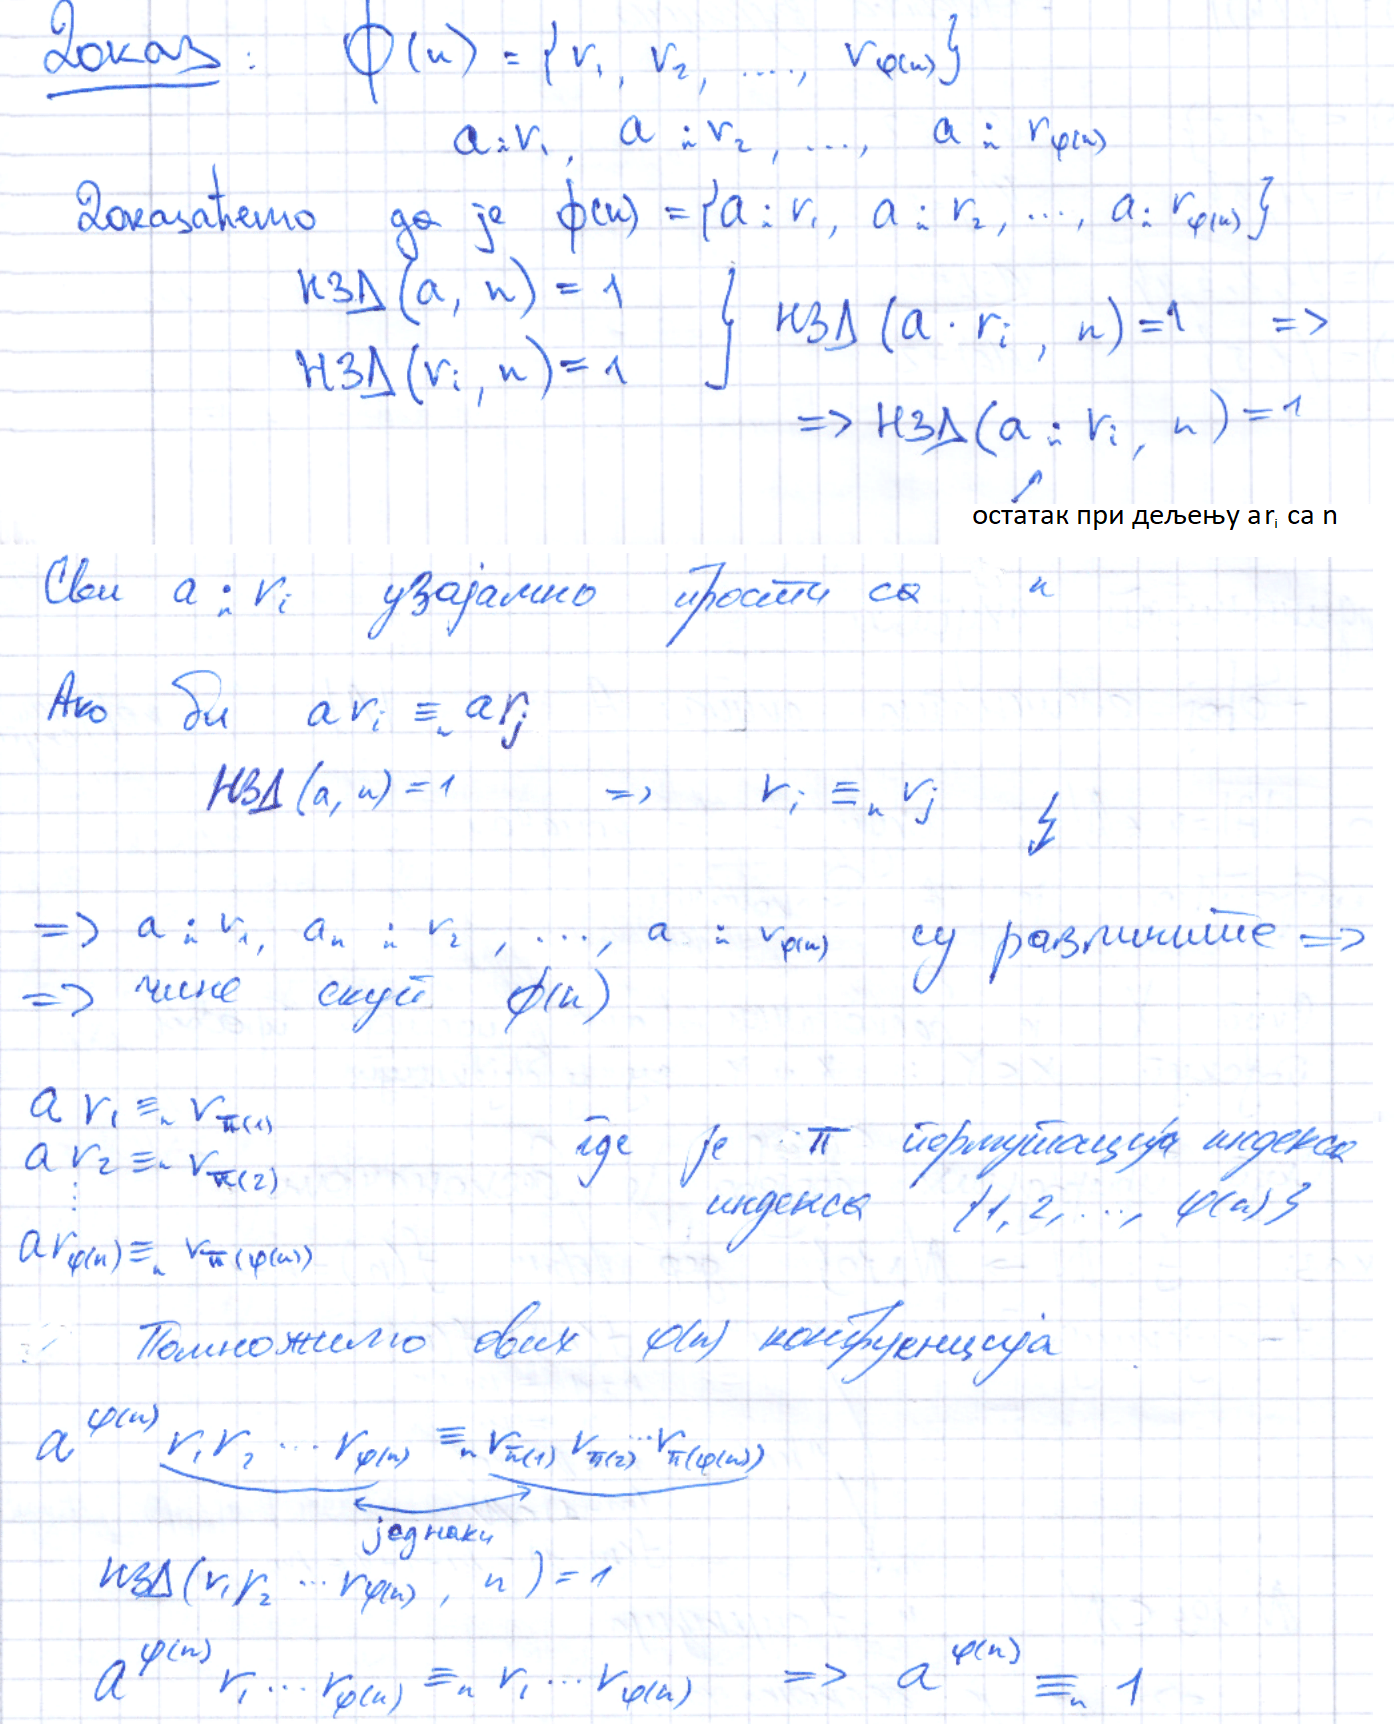 Доказ: Φ(n) = {r₁, r₂, ...., r_φ(n)}
a ·ₙ r₁, a ·ₙ r₂, ..., a ·ₙ r_φ(n)
Доказаћемо да је ϕ(n) = {a ·ₙ r₁, a ·ₙ r₂, ..., a ·ₙ r_φ(n)}
НЗД(a, n) = 1
НЗД(rᵢ, n) = 1 } НЗД(a · rᵢ, n) = 1 =>
=> НЗД(a ·ₙ rᵢ, n) = 1
остатак при дељењу a rᵢ са n
Сви a ·ₙ rᵢ узајамно прости са n
Ако би a rᵢ ≡ₙ a rⱼ
НЗД(a, n) = 1 => rᵢ ≡ₙ rⱼ ↯
=> a ·ₙ r₁, aₙ ·ₙ r₂, ..., a ·ₙ r_φ(n) су различите =>
=> чине скуп ϕ(n)
a r₁ ≡ₙ r_π(1)
a r₂ ≡ₙ r_π(2)
⋮
a r_φ(n) ≡ₙ r_π(φ(n))
где је π пермутација индекса
индекса {1, 2, ..., φ(n)}
Помножимо ових φ(n) конгруенција
a^φ(n) r₁ r₂ ... r_φ(n) ≡ₙ r_π(1) r_π(2) ... r_π(φ(n))
једнаки
НЗД(r₁ r₂ ... r_φ(n), n) = 1
a^φ(n) r₁ ... r_φ(n) ≡ₙ r₁ ... r_φ(n) => a^φ(n) ≡ₙ 1